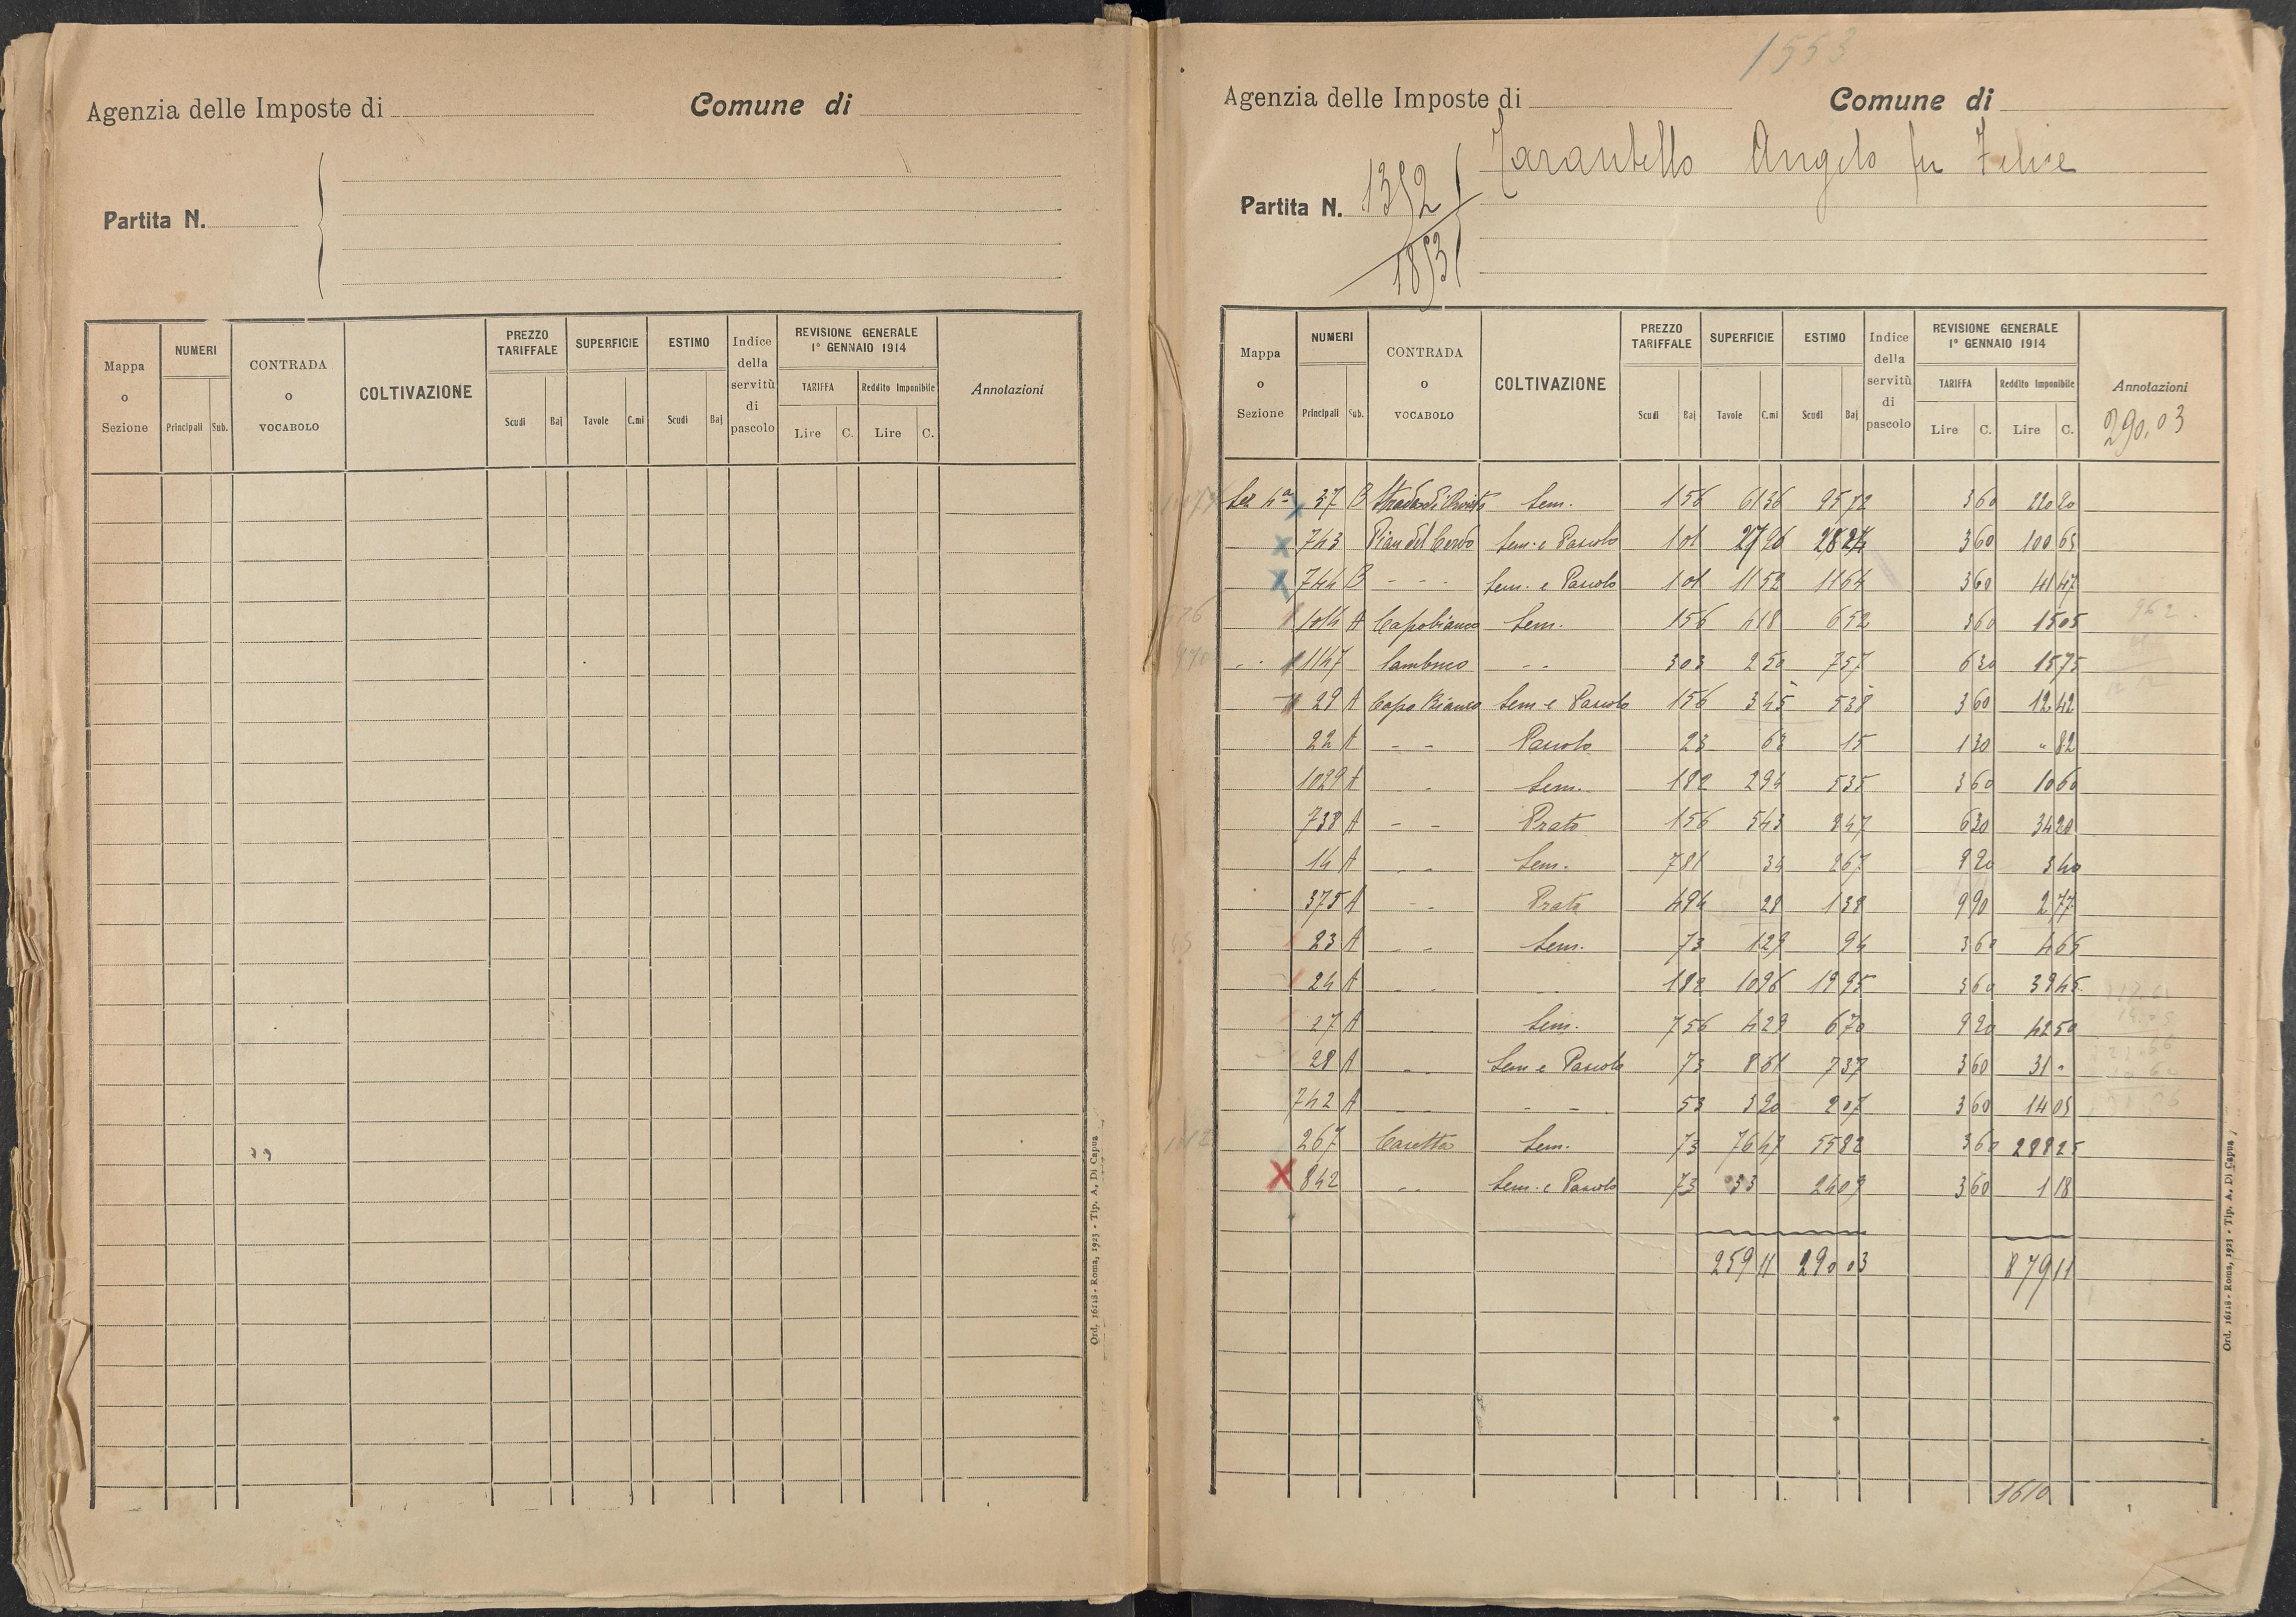 Agenzia delle Imposte di Comune di
Partita N.
Mappa o Sezione NUMERI Principali Sub. CONTRADA o VOCABOLO COLTIVAZIONE PREZZO TARIFFALE Scudi Baj SUPERFICIE Tavole C.mi ESTIMO Scudi Baj Indice della servitù di pascolo REVISIONE GENERALE 1° GENNAIO 1914 TARIFFA Lire C. Reddito Imponibile Lire C. Annotazioni
Ord. 16118 - Roma, 1923 - Tip. A. Di Capua
1553
Agenzia delle Imposte di Comune di
Tarantello Angelo fu Felice
Partita N. 1352
1853
Mappa o Sezione NUMERI Principali Sub. CONTRADA o VOCABOLO COLTIVAZIONE PREZZO TARIFFALE Scudi Baj SUPERFICIE Tavole C.mi ESTIMO Scudi Baj Indice della servitù di pascolo REVISIONE GENERALE 1° GENNAIO 1914 TARIFFA Lire C. Reddito Imponibile Lire C. Annotazioni
290.03
Sez 4ª 37 B Sem. 1 56 61 36 95 72 3 60 220 90
743 Pian del Cervo Sem. e Pascolo 1 01 27 96 28 24 3 60 100 65
744 B - - - Sem. e Pascolo 1 01 11 52 11 64 3 60 41 47
1014 A Capobianco Sem. 1 56 4 18 6 52 3 60 15 05
1147 Sambuco - - 3 03 2 50 7 57 6 30 15 75
29 A Capo Bianco Sem e Pascolo 1 56 3 45 5 38 3 60 12 42
22 A - - Pascolo 23 63 15 1 30 " 82
1029 A - - Sem. 1 82 2 94 5 35 3 60 10 60
738 A - - Prato 1 56 5 43 8 47 6 30 34 20
14 A - - Sem. 7 81 34 2 67 9 90 3 40
375 A - - Prato 4 94 28 1 38 9 90 2 77
23 A - - Sem. 73 1 29 94 3 60 4 65
24 A - - - - 1 82 10 96 19 95 3 60 39 45
27 A Sem. 1 56 4 29 6 70 9 90 42 50
28 A - - Sem e Pascolo 73 8 61 7 37 3 60 31 "
742 A - - - - 53 3 90 2 07 3 60 14 05
267 Casetta Sem. 73 76 47 55 82 3 60 288 25
842 - - Sem. e Pascolo 73 33 24 09 3 60 1 18
259 11 290 03 879 11
1610
Ord. 16118 - Roma, 1923 - Tip. A. Di Capua